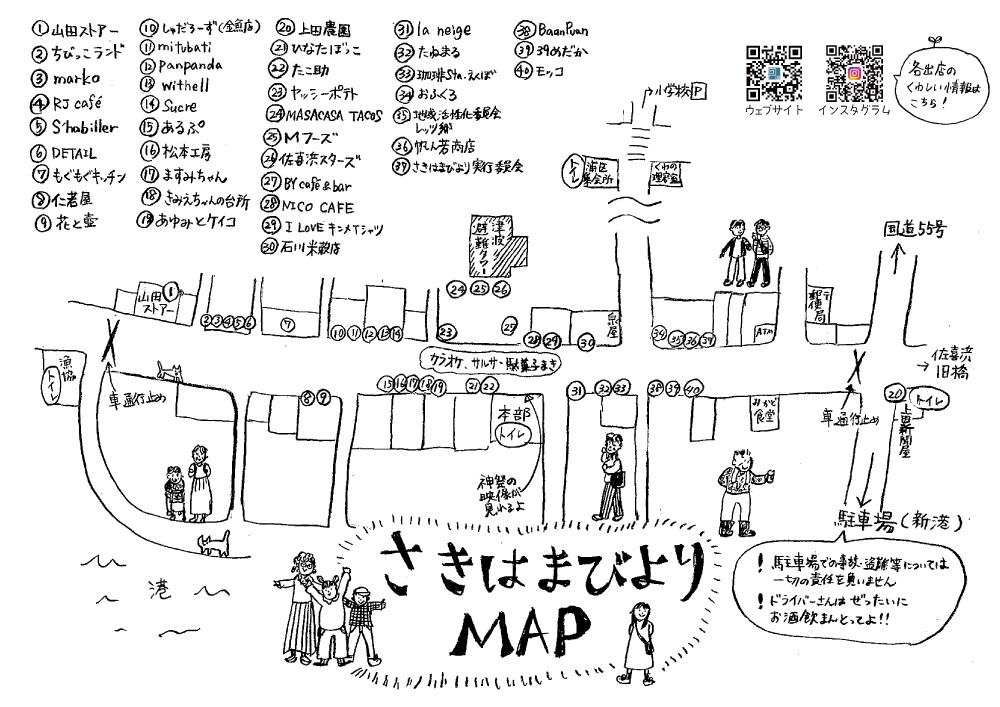 ①山田ストアー
②ちびっこランド
③marko
④RJ café
⑤S'habiller
⑥DETAIL
⑦もぐもぐキッチン
⑧仁者屋
⑨花と壺
⑩しゃだろーず(金魚店)
⑪mitubati
⑫Panpanda
⑬Withell
⑭Sucre
⑮あるぷ
⑯松本工房
⑰ますみちゃん
⑱きみえちゃんの台所
⑲あゆみとケイコ
⑳上田農園
㉑ひなたぼっこ
㉒たこ助
㉓ヤッシーポテト
㉔MASACASA TACOS
㉕Mフーズ
㉖佐喜浜スターズ
㉗BY café&bar
㉘NICO CAFE
㉙I LOVE キンメTシャツ
㉚石川米穀店
㉛la neige
㉜たぬまる
㉝珈琲Sta.えくぼ
㉞おふくろ
㉟地域活性化委員会
レッツ鯏
㊱忱し芳商店
㊲さきはまびより実行委員会
㊳BaanPuan
㊴39めだか
㊵モッコ
ウェブサイト
インスタグラム
各出店の
くわしい情報は
こちら!
→小学校P
トイレ
浦区
集会所
くわの
理容室
国道55号
津波
避難タワー
㉔ ㉕ ㉖
山田
ストアー
①
②③④⑤⑥
⑦
⑩⑪⑫⑬⑭
㉓
㉗
㉘㉙
㉚
泉屋
㉞㉟㊱㊲
ATM
郵便局
〒
カラオケ、サルサ・駄菓子まき
佐喜浜
→旧橋
漁協
トイレ
車通行止め
⑧⑨
⑮⑯⑰⑱⑲
㉑㉒
本部
トイレ
㉛
㉜㉝
㊳㊴㊵
みかど
食堂
車通行止め
⑳
トイレ
上田新聞屋
神祭の
映像が
見れるよ
駐車場(新港)
!駐車場での事故・盗難等については
一切の責任を負いません
!ドライバーさんは ぜったいに
お酒飲まんとってよ!!
港
さきはまびより
MAP